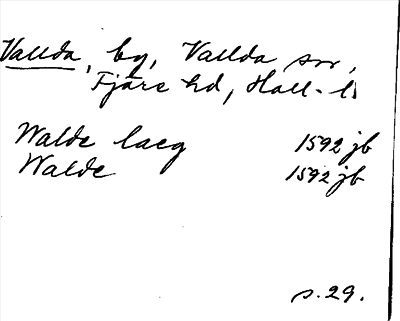 Vallda, by, Vallda sn,
Fjäre hd, Hall. l.
Walde laeg 1592 jb
Walde 1592 jb
s. 29.